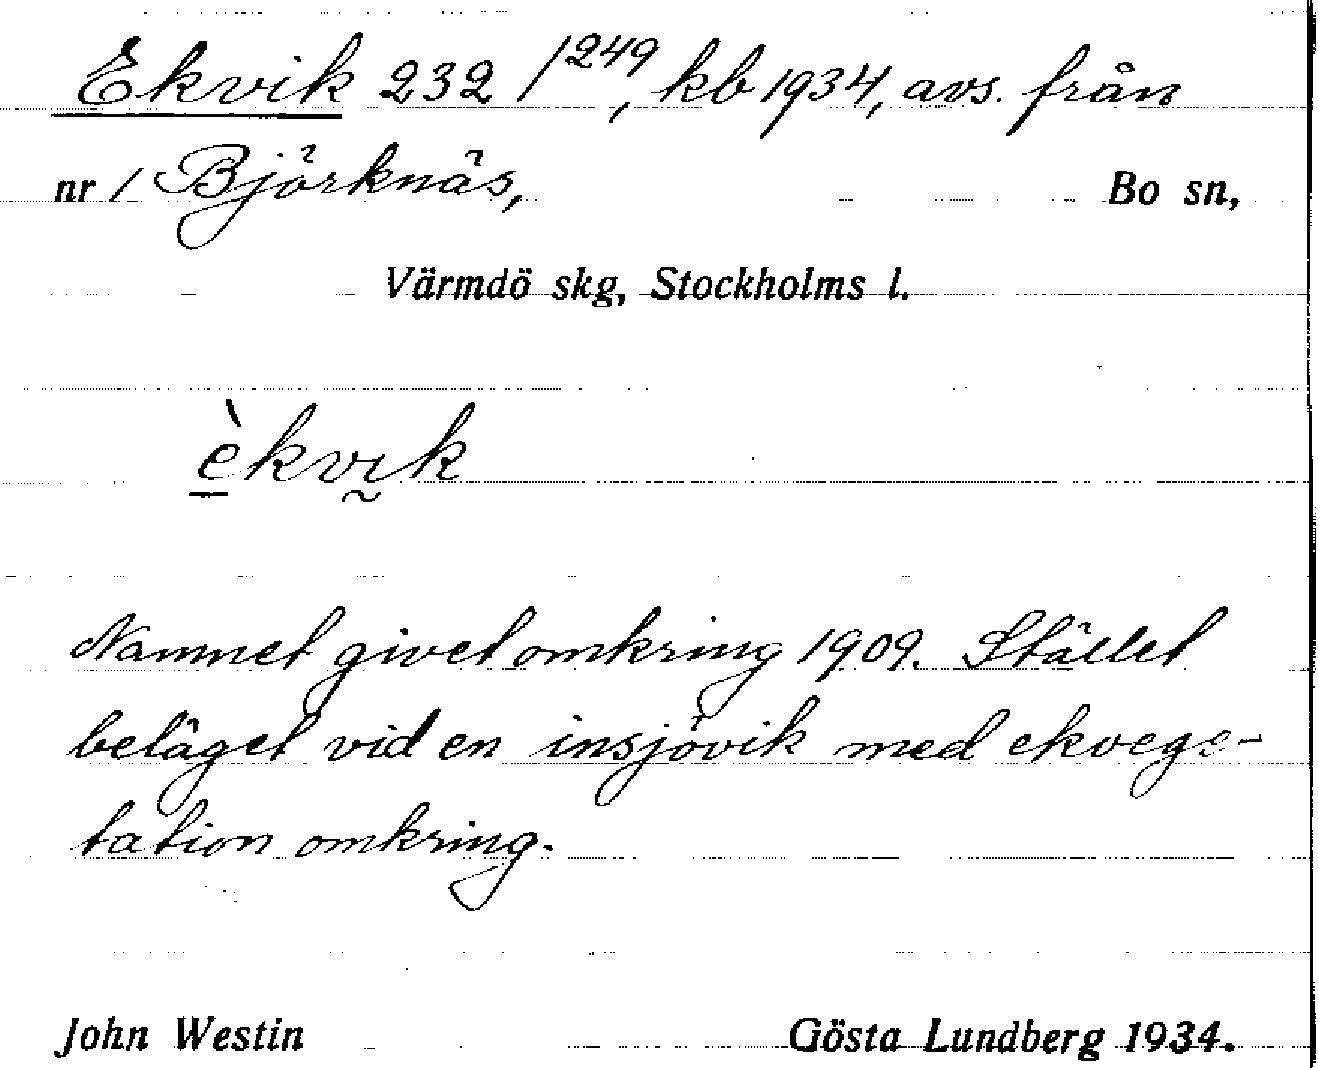 Ekvik 232 /249, kb 1934, avs. från
nr 1 Björknäs, Bo sn,
Värmdö skg, Stockholms l.
èkvik
Namnet givet omkring 1909. Stället
beläget vid en insjövik med ekvege-
tation omkring.
John Westin Gösta Lundberg 1934.